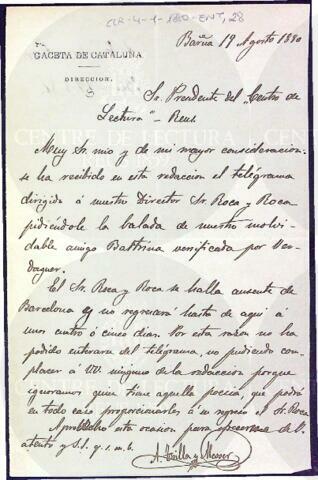 CLR-4-1-1880-ENT, 28
GACETA DE CATALUÑA
DIRECCION
Barna 19 Agosto 1880
Sr. Presidente del "Centro de
Lectura" - Reus.
Muy Sr. mio y de mi mayor consideracion:
se ha recibido en esta redaccion el telégrama
dirigido á nuestro Director Sr. Roca y Roca
pidiéndole la balada de nuestro inolvi-
dable amigo Bartrina versificada por Ver-
daguer.
El Sr. Roca y Roca se halla ausente de
Barcelona y no regresará hasta de aquí á
unos cuatro ó cinco dias. Por esta razon no ha
podido enterarse del telégrama, no pudiendo com-
placer á VV. ninguno de la redaccion porque
ignoramos quien tiene aquella poesía, que podrá
en todo caso proporcionarles á su regreso el Sr. Roca
Aprovecho esta ocasion para ofrecerme de V.
atento y S.S. q. s. m. b.
A.
CENTRE DE LECTURA
REUS 1859